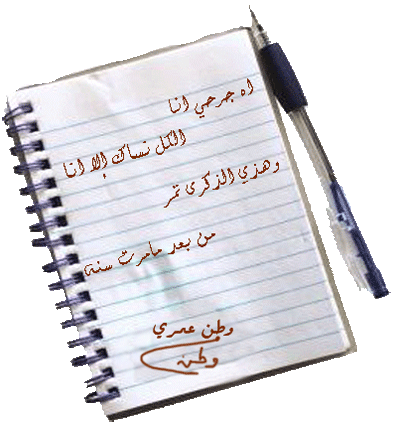 اه جرحي انا
الكل نساك إلا انا
وهذي الذكرى تمر
من بعد مامرت سنه
وطن عمري
وطن